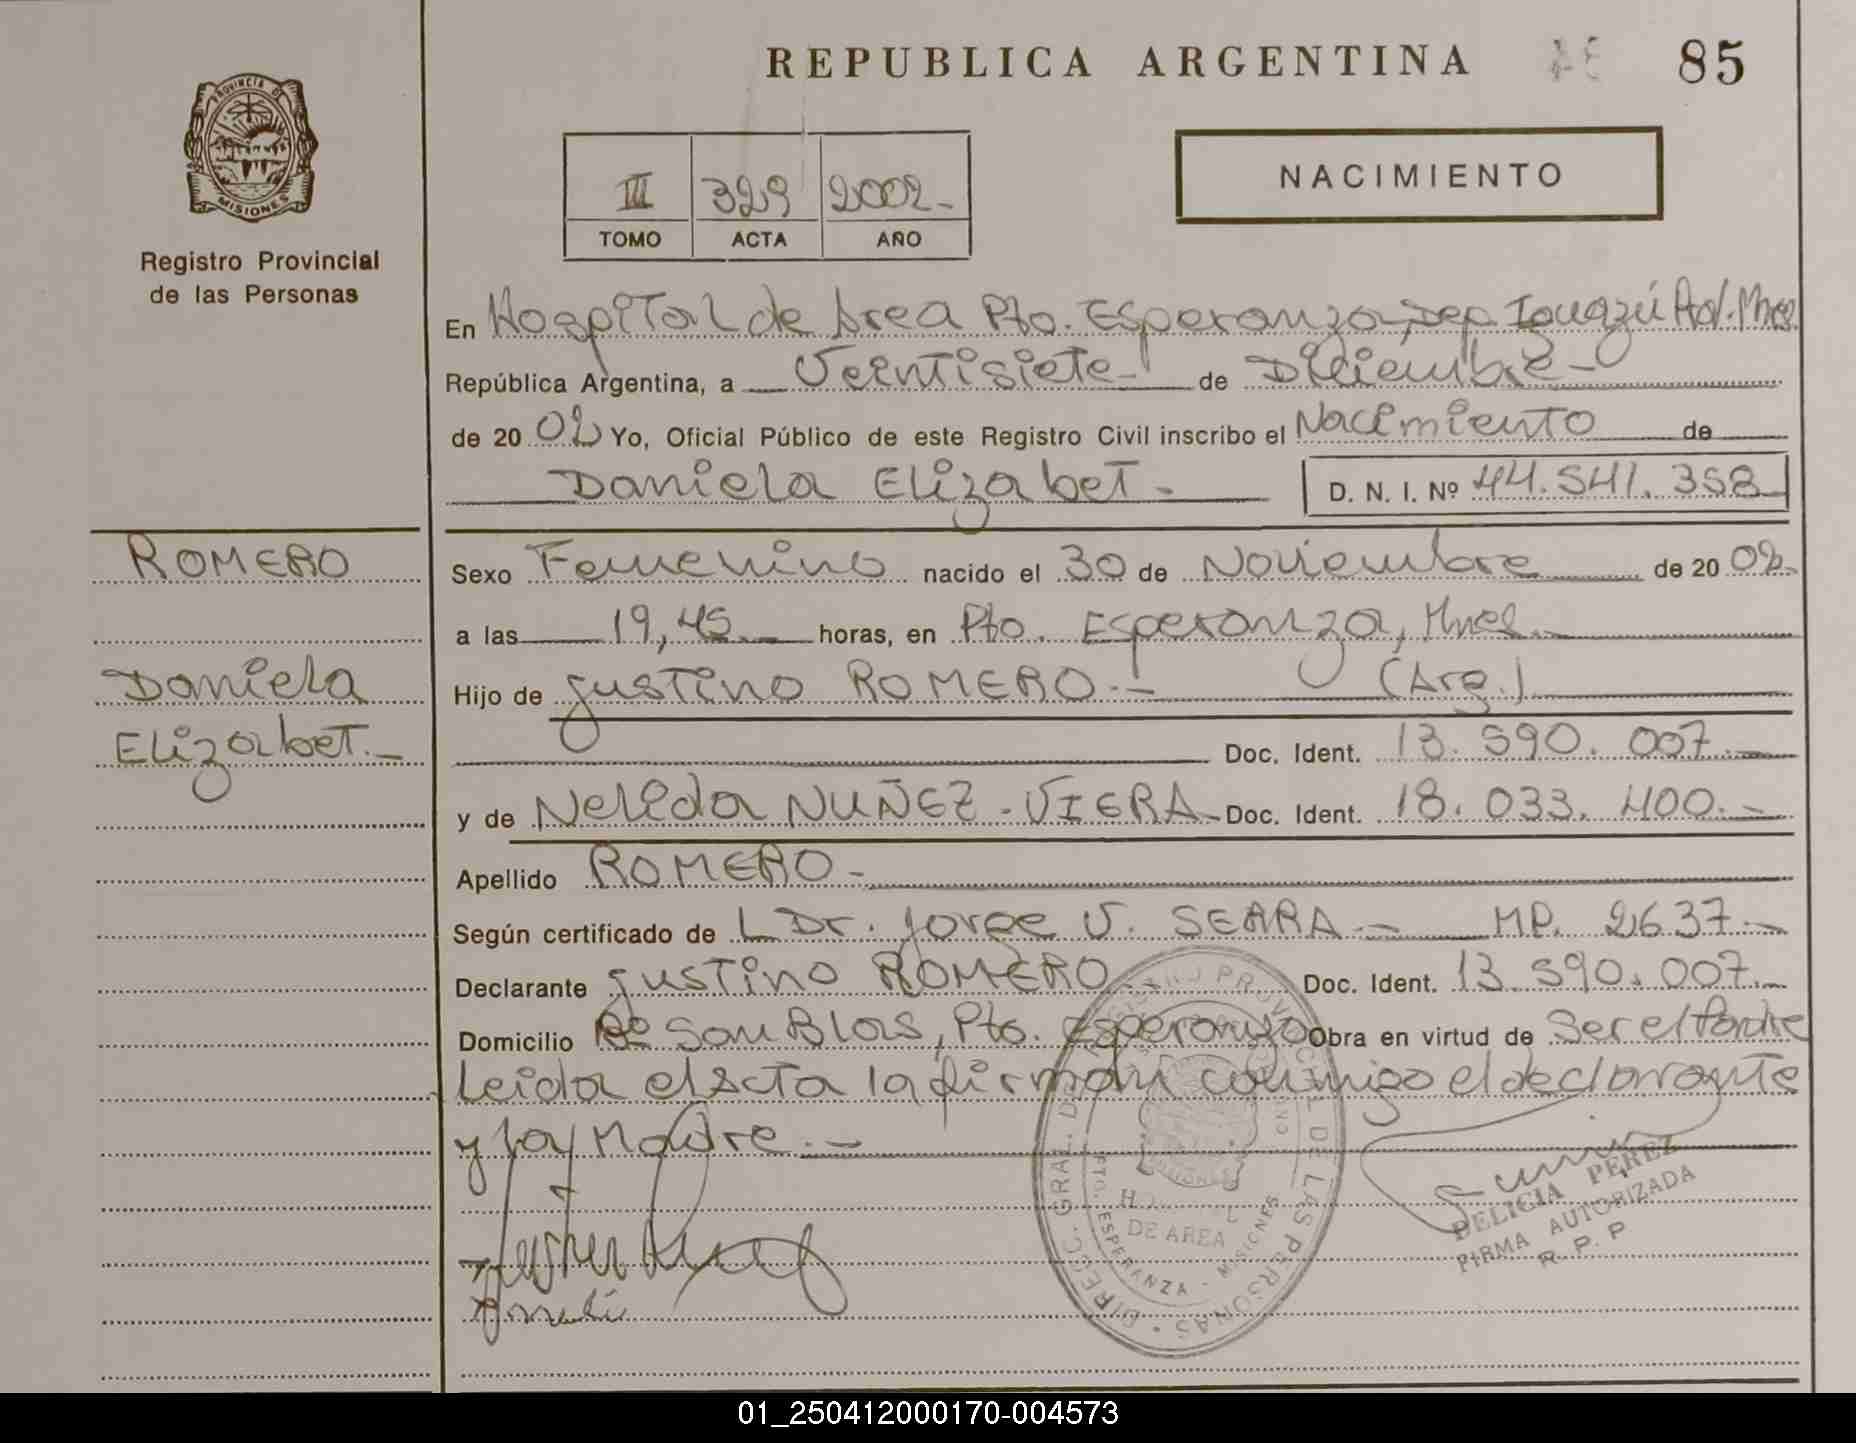 REPUBLICA ARGENTINA 85
PROVINCIA DE
MISIONES
Registro Provincial
de las Personas
III 329 2002-
TOMO ACTA AÑO
NACIMIENTO
En Hospital de Area Pto. Esperanza, Dep. Iguazú Prov. Mnes.
República Argentina, a Veintisiete- de Diciembre-
de 2002 Yo, Oficial Público de este Registro Civil inscribo el Nacimiento de
Daniela Elizabet- D. N. I. Nº 44.541.358
ROMERO
Daniela
Elizabet.-
Sexo Femenino nacido el 30 de Noviembre de 2002.
a las 19,45 horas, en Pto. Esperanza, Mnes.-
Hijo de Justino ROMERO.- (Arg.)
Doc. Ident. 13.590.007.-
y de Nelida NUÑEZ-VIERA- Doc. Ident. 18.033.400.-
Apellido ROMERO-
Según certificado de L Dr. Jorge V. SEARA.- MP. 2637.-
Declarante Justino ROMERO.- Doc. Ident. 13.590.007.-
Domicilio Bº San Blas, Pto. Esperanza Obra en virtud de Ser el Padre
Leida el acta la firman conmigo el declarante
y la Madre.-
DIREC. GRAL. DEL REGISTRO PROVINCIAL DE LAS PERSONAS
HOSPITAL
DE AREA
PTO. ESPERANZA - MISIONES
DELICIA PEREZ
FIRMA AUTORIZADA
R.P.P
01_250412000170-004573